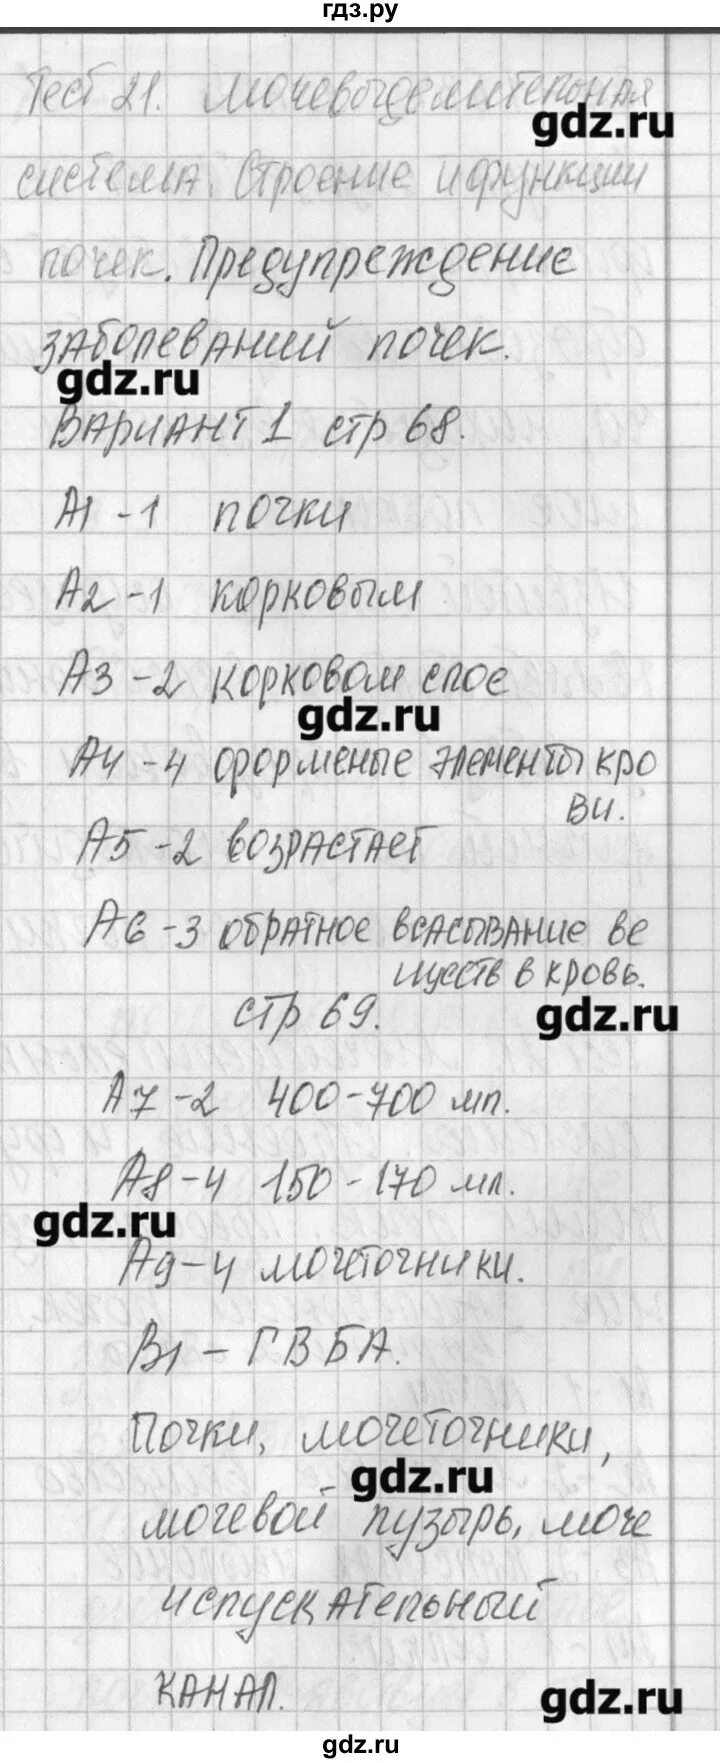 гдз.ру
Тест 21. Мочевыделительная
gdz.ru
система. Строение и функции
почек. Предупреждение
заболеваний почек.
gdz.ru
Вариант 1 стр 68.
А1 - 1 почки
А2 - 1 корковым
А3 - 2 корковом слое
gdz.ru
А4 - 4 форменые элементы кро
ви.
А5 - 2 возрастает
А6 - 3 обратное всасывание ве
ществ в кровь.
стр 69.
gdz.ru
А7 - 2 400-700 мл.
А8 - 4 150-170 мл.
gdz.ru
А9 - 4 мочеточники.
В1 - ГВБА.
Почки, мочеточники,
gdz.ru
мочевой пузырь, моче
испускательный
канал.
gdz.ru
гдз.ру